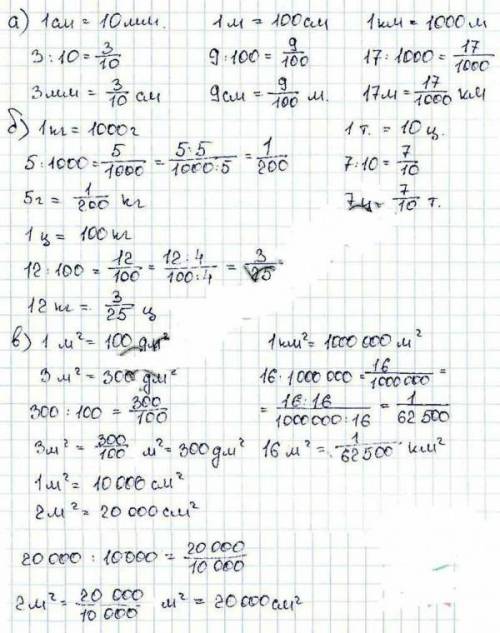 а) 1 см = 10 мм. 1 м = 100 см 1 км = 1000 м
3 : 10 = 3/10 9 : 100 = 9/100 17 : 1000 = 17/1000
3 мм = 3/10 см 9 см = 9/100 м. 17 м = 17/1000 км
б) 1 кг = 1000 г 1 т. = 10 ц.
5 : 1000 = 5/1000 = 5:5/1000:5 = 1/200 7 : 10 = 7/10
5 г = 1/200 кг 7 ц = 7/10 т.
1 ц = 100 кг
12 : 100 = 12/100 = 12:4/100:4 = 3/25
12 кг = 3/25 ц
в) 1 м² = 100 дм² 1 км² = 1000 000 м²
3 м² = 300 дм² 16 : 1000 000 = 16/1000 000 =
300 : 100 = 300/100 = 16:16/1000000:16 = 1/62 500
3 м² = 300/100 м² = 300 дм² 16 м² = 1/62500 км²
1 м² = 10 000 см²
2 м² = 20 000 см²
20 000 : 10000 = 20 000/10 000
2 м² = 20 000/10 000 м² = 20000 см²